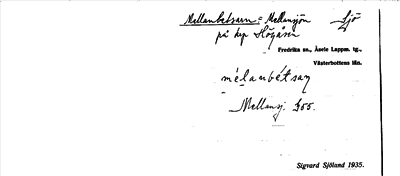 Mellanbetsarn = Mellansjön Sjö
på kp Högåsen
Fredrika sn., Åsele Lappm. tg.,
Västerbottens län.
mélanbétsaṇ
Mellansj.
Sigvard Sjöland 1935.